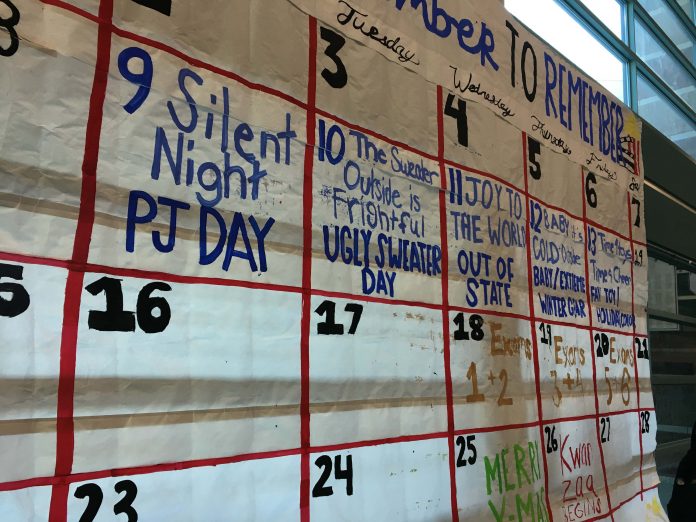 TO REMEMBER
Tuesday
Wednesday
Thursday
Friday
3
4
5
6
7
9
Silent
Night
PJ DAY
10 The Sweater
Outside is
Frightful
UGLY SWEATER
DAY
11 JOY TO
THE WORLD
OUT OF
STATE
12 BABY it's
COLD Outside
BABY/EXTREME
WINTER GEAR
13
16
17
18 Exams
1 + 2
19 Exams
3 + 4
20 Exams
5 6
21
23
24
25
MERRI
X-MAS
26
Kwan
zaa
BEGINS
27
28